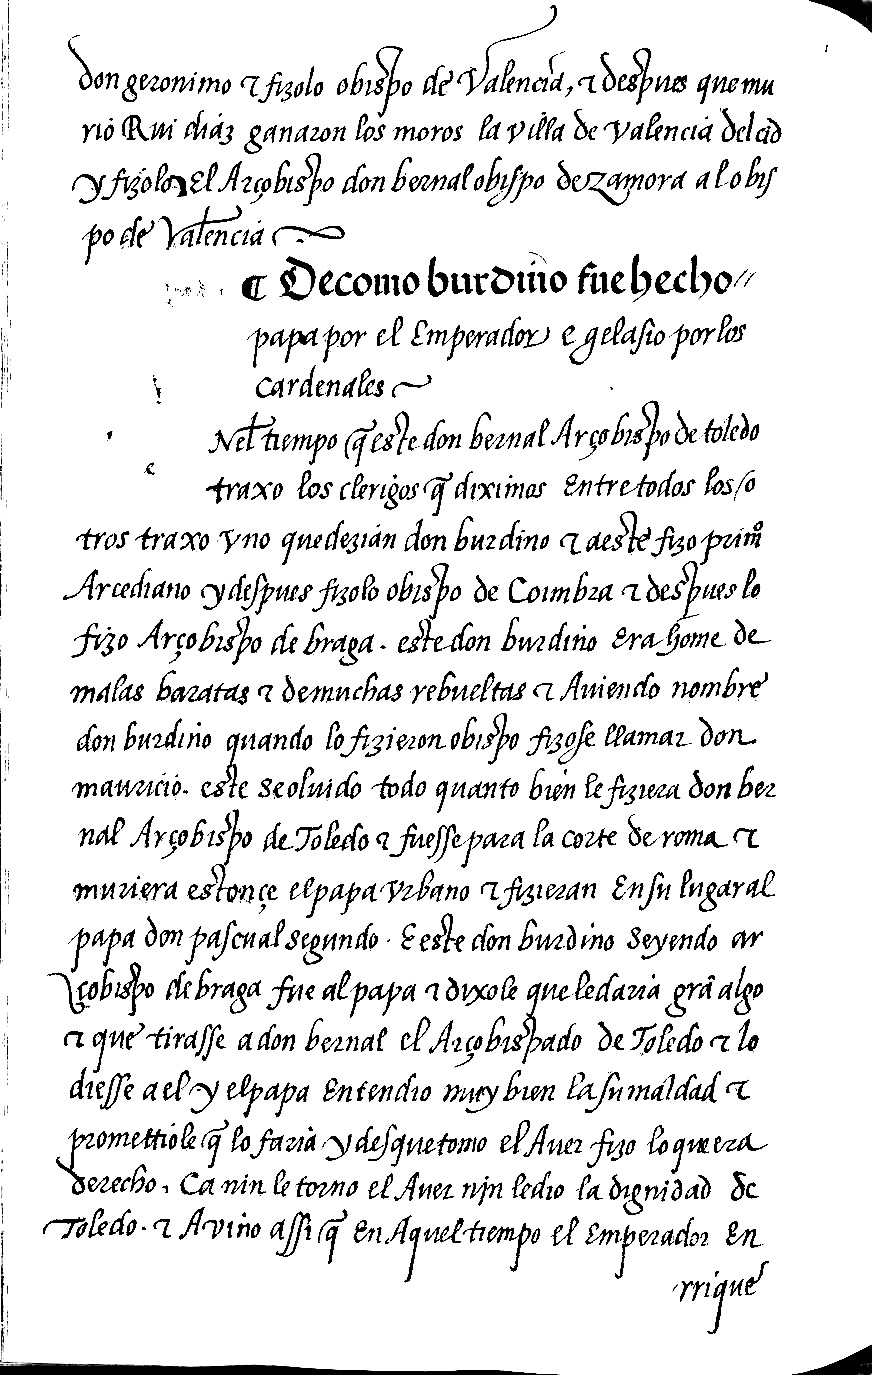 don geronimo ⁊ fizolo obispo de Valencia, ⁊ despues que mu
rio Rui diaz ganaron los moros la villa de valencia del cid
y fizolo el Arçobispo don bernal obispo de zamora a l obis
po de Valencia
¶ De como burdino fue hecho
papa por el Emperador e gelasio por los
cardenales
Nel tiempo q̃ este don bernal Arçobispo de toledo
traxo los clerigos q̃ diximos Entre todos los o
tros traxo vno que dezian don burdino ⁊ a este fizo primº
Arcediano y despues fizolo obispo de Coimbra ⁊ despues lo
fizo Arçobispo de braga. este don burdino Era home de
malas baratas ⁊ de muchas rebueltas ⁊ Auiendo nombre
don burdino quando lo fizieron obispo fizose llamar don
mauricio. este se oluido todo quanto bien le fiziera don ber
nal Arçobispo de Toledo ⁊ fuesse para la corte de roma ⁊
muriera estonçe el papa vrbano ⁊ fizieran En su lugar al
papa don pascual segundo. E este don burdino seyendo ar
çobispo de braga fue al papa ⁊ dixole que le daria grã algo
⁊ que tirasse a don bernal el Arçobispado de Toledo ⁊ lo
diesse a el y el papa Entendio muy bien la su maldad ⁊
promettiole q̃ lo faria y desque tomo el Auer fizo lo que era
derecho, Ca nin le torno el Auer nin le dio la dignidad de
Toledo. ⁊ Avino assi q̃ En Aquel tiempo el Emperador En
rrique